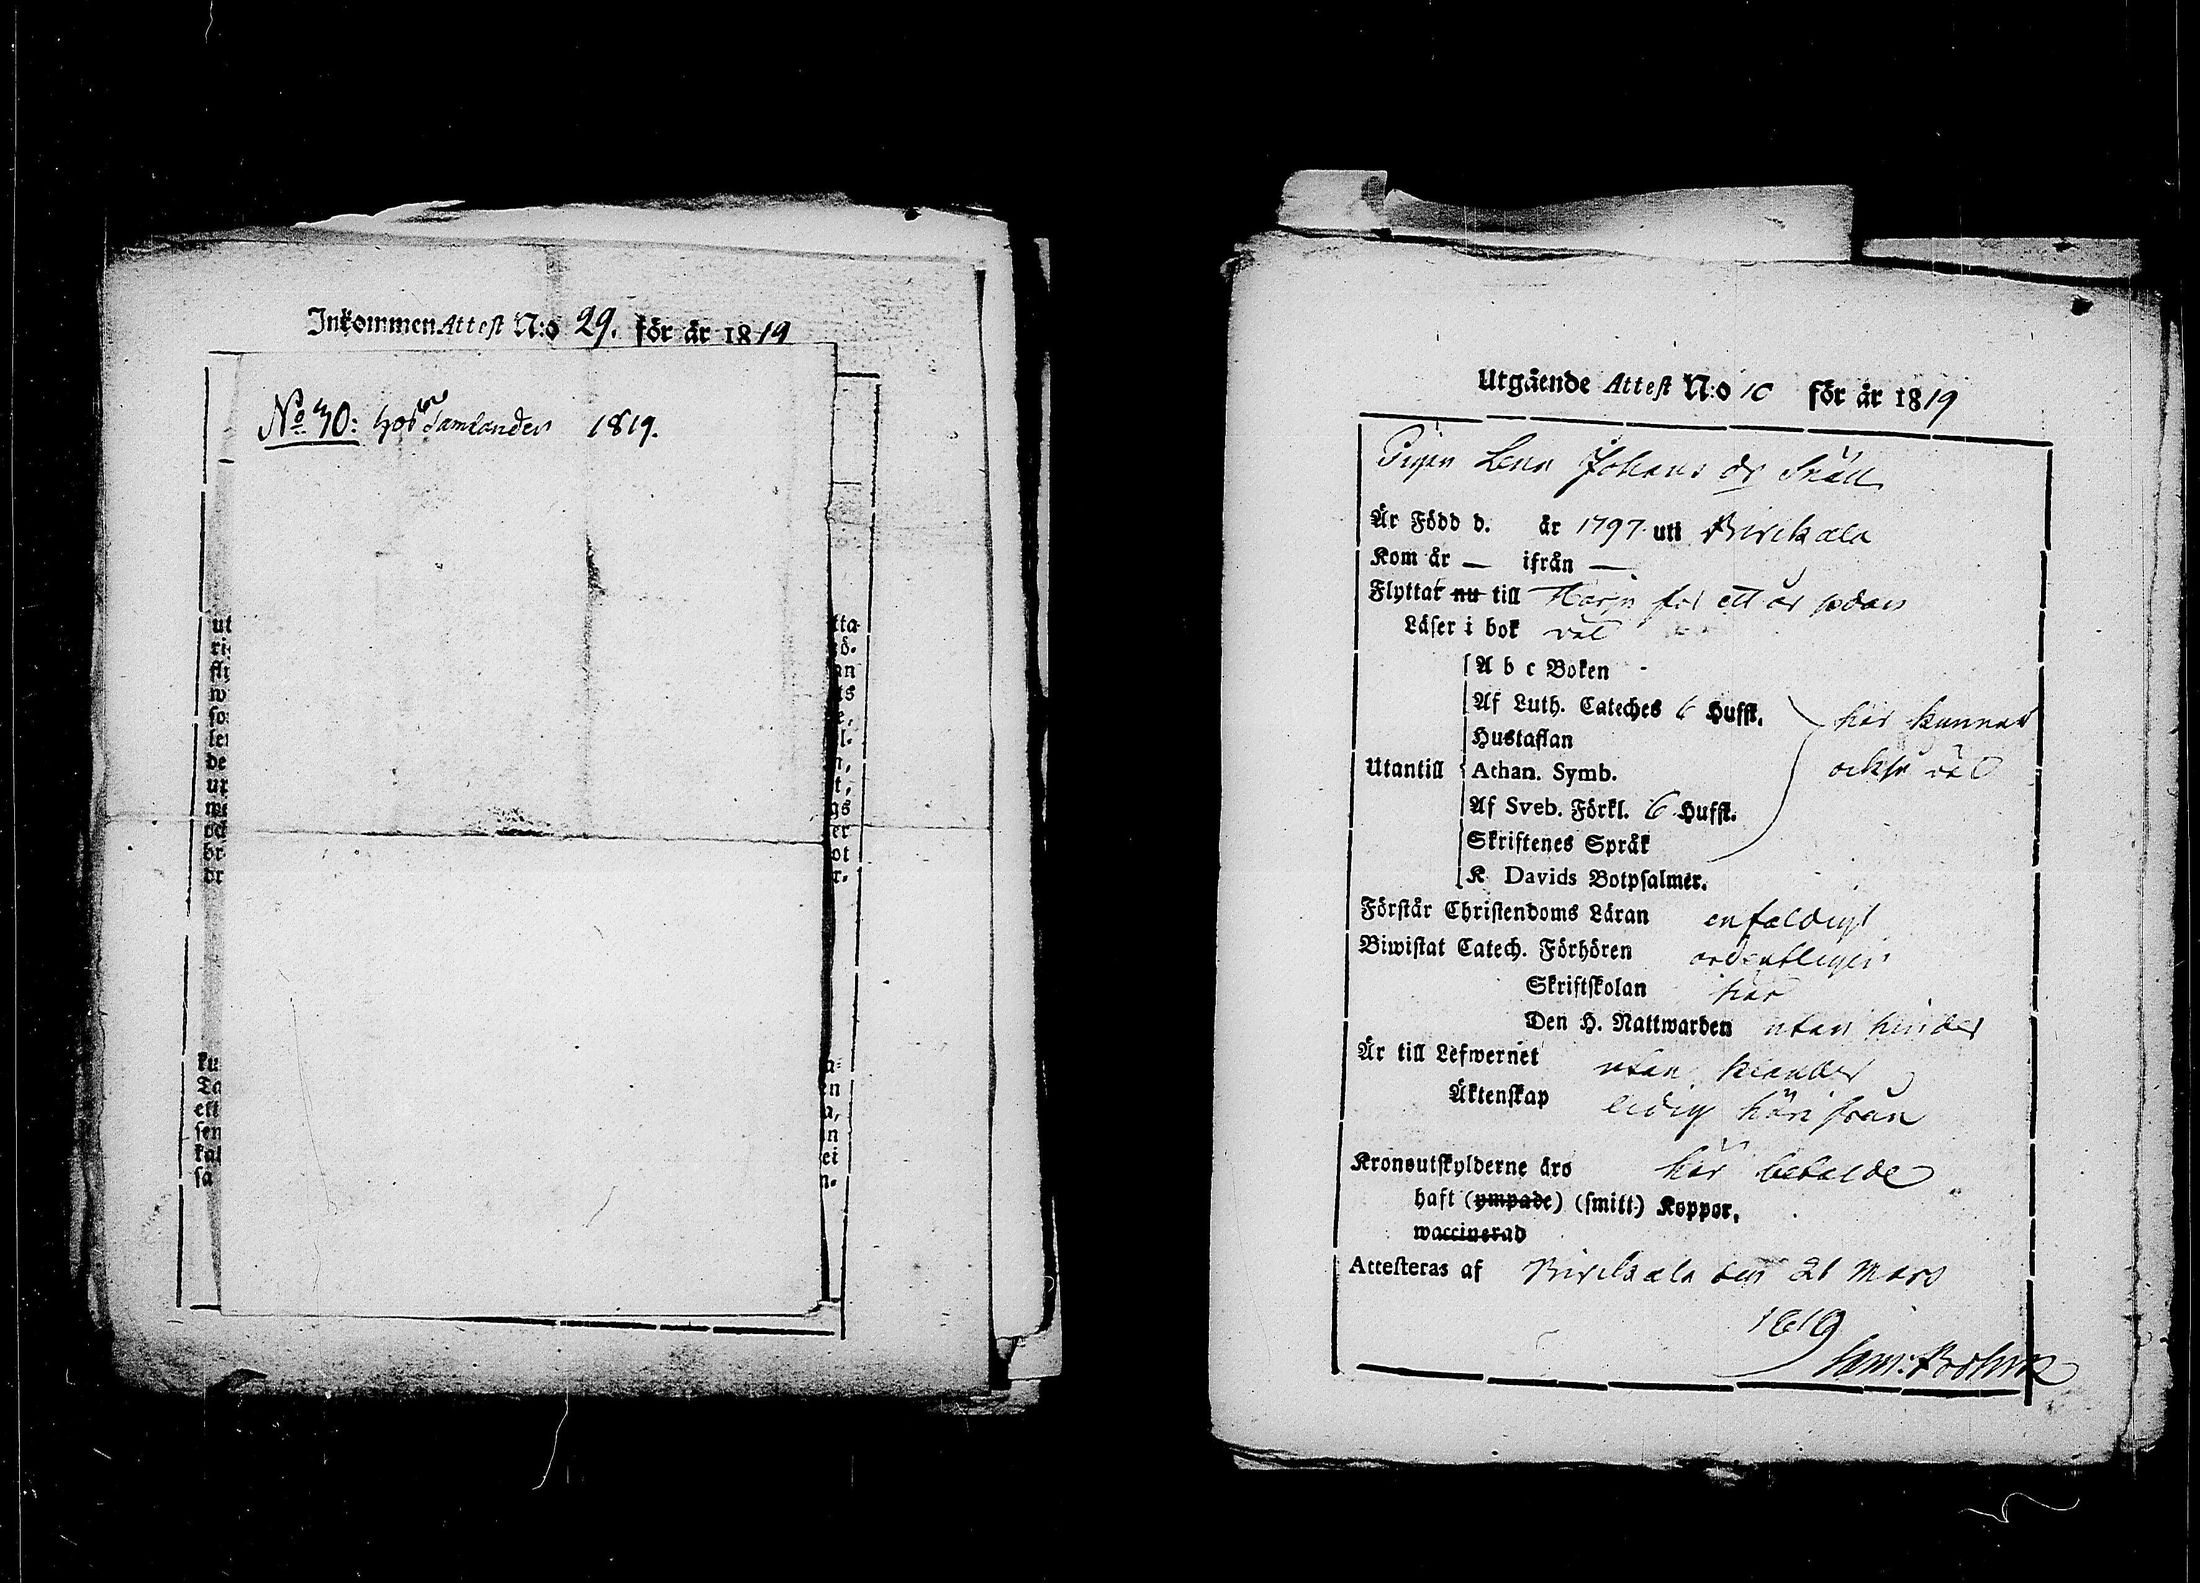 Inkommen Attest N:o 29. för år 1819
No 70: hos Samlanden 1819.
ut
ri
fly
w
so
ler
de
ur
me
och
br
br
tta
rö.
an
ts
e,
l.
n,
t,
gs
er
ot
r.
ku
Ta
eft
sen
kal
sa
a=
en
a,
in
ei
n.
Utgående Attest N:o 10 för år 1819
Pigan Lena Johans dr Snäll
Är Född d. år 1797 uti Birckala
Kom år — ifrån —
Flyttat nu till Harju for ett år sedan
Läser i bok väl
A b c Boken -
Af Luth. Cateches 6 Hufst.
Hustaflan
här kunnat
Utantill Athan. Symb.
också väl
Af Sveb. Förkl. 6 Hufst.
Skriftenes Språk
K Davids Botpsalmer.
Förstår Christendoms Läran enfaldigt
Biwistat Catech. Förhören ordentligen
Skriftskolan här
Den H. Nattwarden utan hinder
Är till Lefwernet utan klander
Äktenskap ledig härifrån
Kronoutskylderne äro här betalde
haft (ympade) (smitt-) Koppor.
waccinerad
Attesteras af Birckala den 21 Mars
1819
Sam: